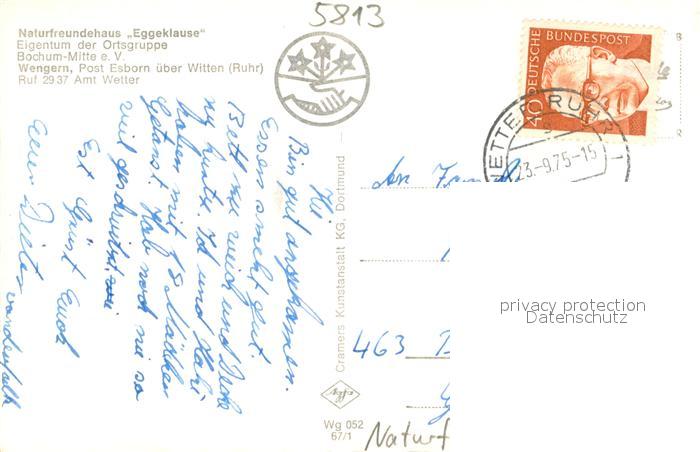 5813
Naturfreundehaus „Eggeklause"
Eigentum der Ortsgruppe
Bochum-Mitte e. V.
Wengern, Post Esborn über Witten (Ruhr)
Ruf 29 37 Amt Wetter
DEUTSCHE BUNDESPOST
40
WETTER RUHR 1
23.-9.75-15
Hi
Bin gut angekommen.
Essen smekt gut.
Bett zu weich und Decke
zu kurtz. Id und
haben mit 18 Mädchen
Getanst. Hab noch nie so
viel geschwitzt
Est Grüst Euch
Euer Dieter
An
463
Cramers Kunstanstalt KG, Dortmund
Agfa
Wg 052
67/1
Naturf
privacy protection
Datenschutz